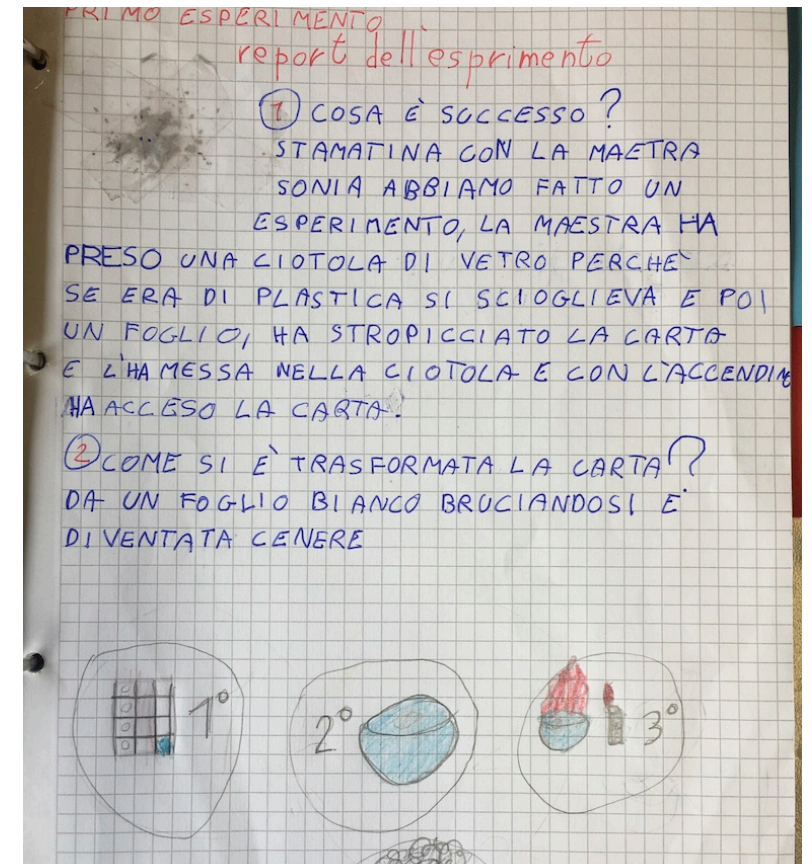 PRIMO ESPERIMENTO
report dell'esprimento
1 COSA È SUCCESSO?
STAMATINA CON LA MAETRA
SONIA ABBIAMO FATTO UN
ESPERIMENTO, LA MAESTRA HA
PRESO UNA CIOTOLA DI VETRO PERCHÈ
SE ERA DI PLASTICA SI SCIOGLIEVA E POI
UN FOGLIO, HA STROPICCIATO LA CARTA
E L'HA MESSA NELLA CIOTOLA E CON L'ACCENDIN
HA ACCESO LA CARTA.
2 COME SI È TRASFORMATA LA CARTA?
DA UN FOGLIO BIANCO BRUCIANDOSI E'
DIVENTATA CENERE
1° 2° 3°